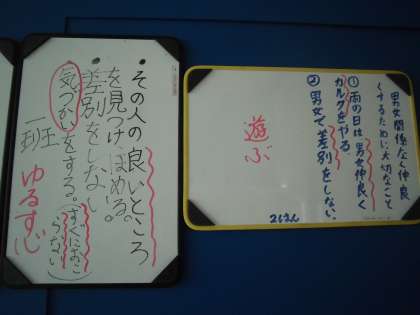 ・その人の良いところ
を見つけほめる。
・差別をしない
・気づかいをする。(すぐにおこらない)
一班
ゆるす心
男女関係なく仲良
くするために大切なこと
①雨の日は男女仲良く
カルタをやる
②男女で差別をしない。
遊ぶ
2はん